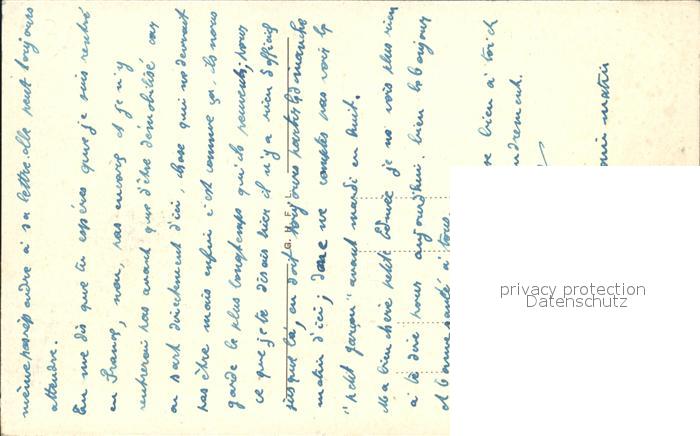 même pas répondre à sa lettre elle peut toujours
attendre.
Tu me dis que tu espères que je suis rentré
en France, non, pas encore et je n'y
rentrerai pas avant que d'être démobilisé car
on part directement d'ici, chose qui ne devrait
pas être mais enfin c'est comme ça, ils nous
garde le plus longtemps qu'ils peuvent; pour
ce que je te disais hier il n'y a rien d'officiel
jusque là, on doit toujours partir le dimanche
matin d'ici; donc ne comptes pas voir le
"petit garçon" avant mardi en huit.
Ma bien chère petite Edmée je ne vois plus rien
à te dire pour aujourd'hui. bien le bonjour
et bonne santé à tous.
bien à toi d
ndrement.
matin
G.H.F.L.
privacy protection
Datenschutz